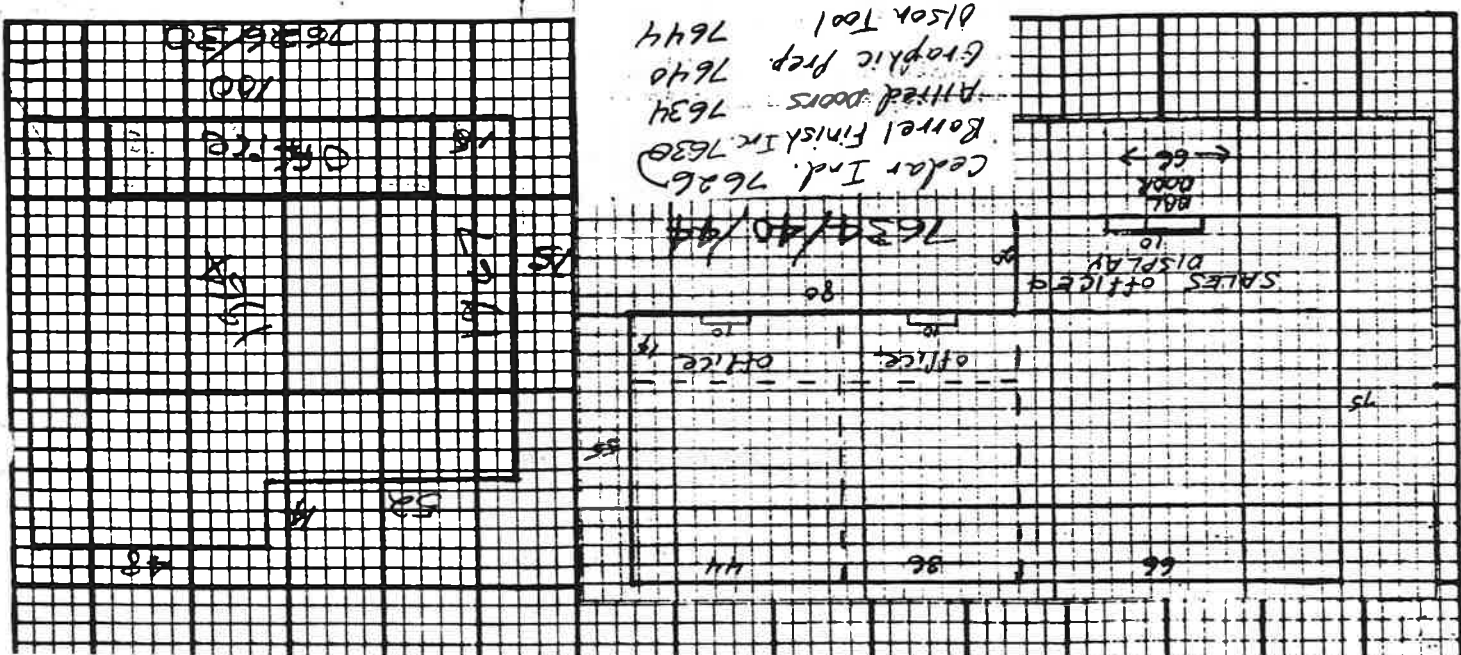 66
36
44
75
55
office
office
19
10
10
80
SALES OFFICE &
DISPLAY
10
20
DBL
DOOR
66
7634/40/44
Cedar Ind. 7626
Barrel Finish Inc. 7630
Allied Doors 7634
Graphic Prep. 7640
Olson Tool 7644
48
52
14
75
Office
100
7626/30